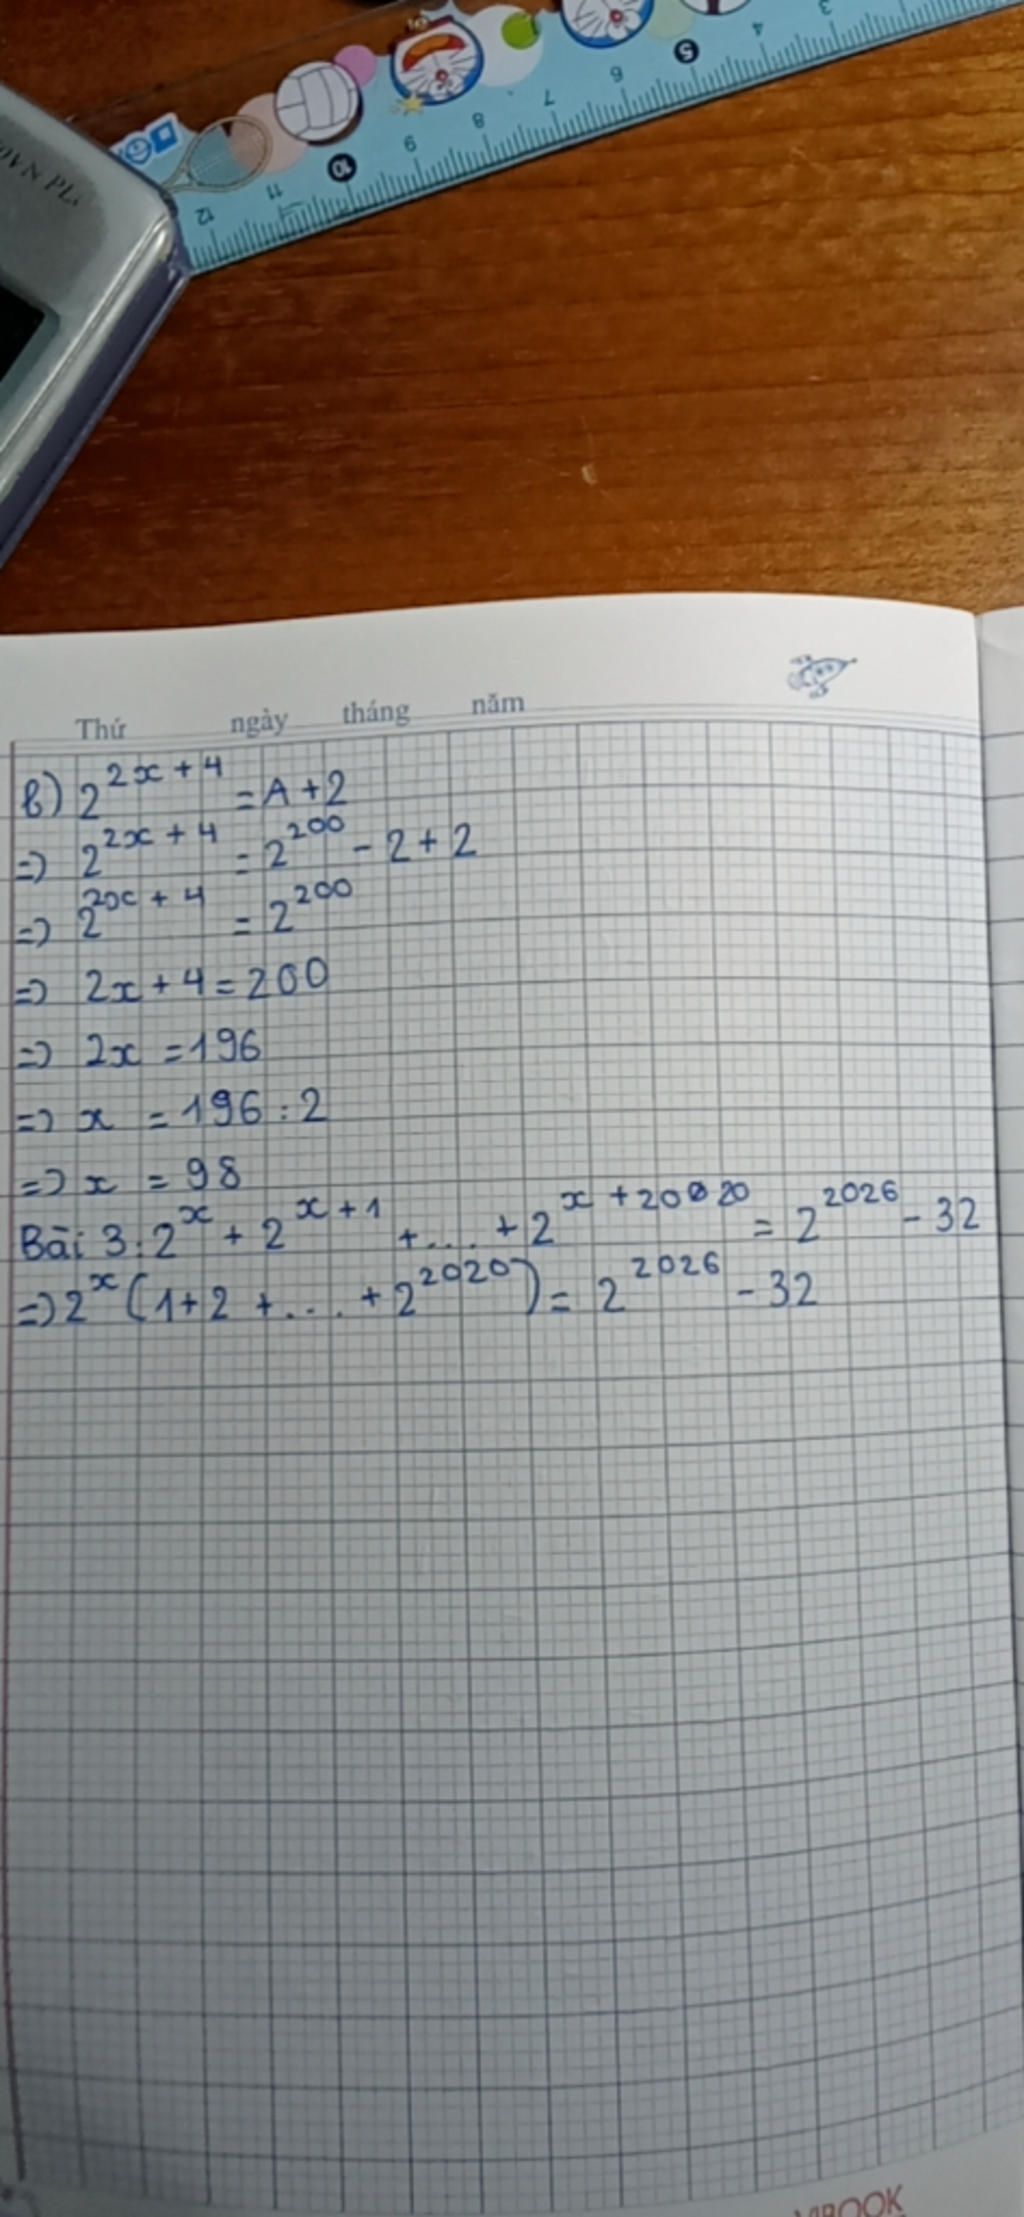 OVN PL
12 11 10 9 8 7 6 5 4 3
Thứ ngày tháng năm
b) 2^{2x+4} = A + 2
=> 2^{2x+4} = 2^{200} - 2 + 2
=> 2^{2x+4} = 2^{200}
=> 2x + 4 = 200
=> 2x = 196
=> x = 196 : 2
=> x = 98
Bài 3: 2^x + 2^{x+1} + .... + 2^{x+2020} = 2^{2026} - 32
=> 2^x (1 + 2 + .... + 2^{2020}) = 2^{2026} - 32
VIBOOK